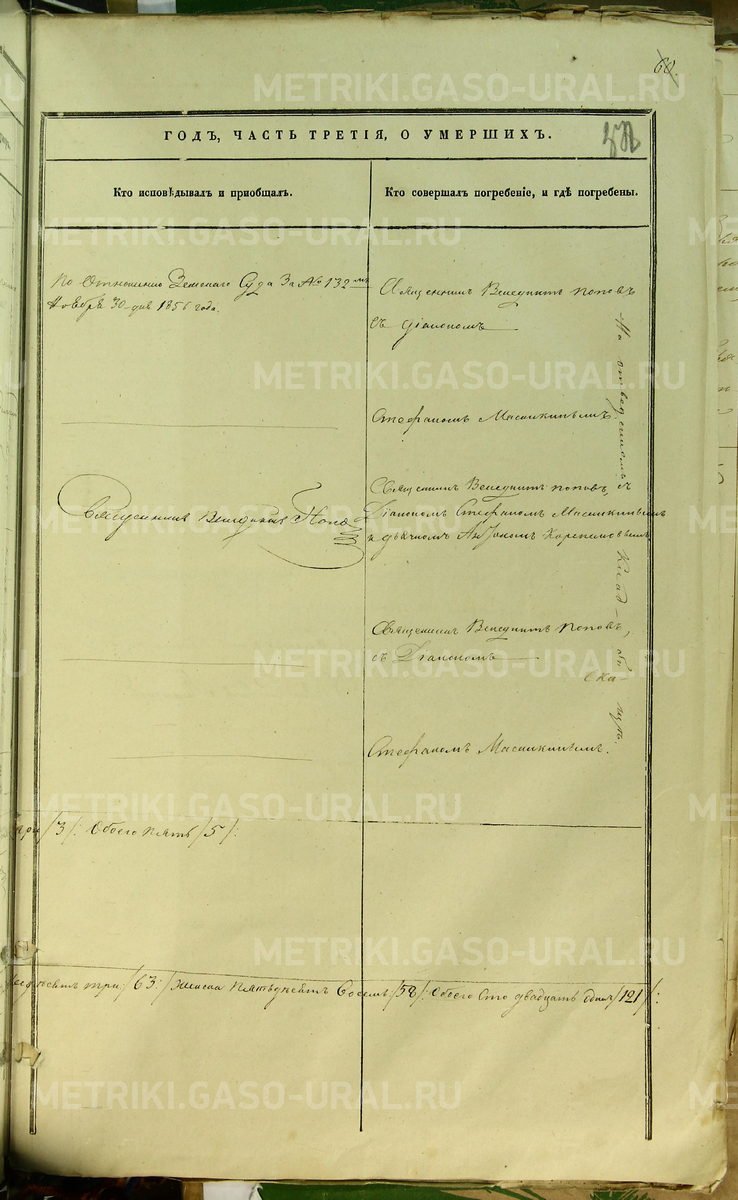 60.
ГОДЪ, ЧАСТЬ ТРЕТІЯ, О УМЕРШИХЪ.
Кто исповѣдывалъ и пріобщалъ.
Кто совершалъ погребеніе, и гдѣ погребены.
По Отношенію Земскаго Суда За № 132мъ
Ноября 30 дня 1856 года.
Священникъ Венедиктъ Поповъ
съ Діакономъ
Стефаномъ
Священникъ Венедиктъ Поповъ
Священникъ Венедиктъ Поповъ, съ
Діакономъ Стефаномъ
и дьячкомъ
Священникъ Венедиктъ Поповъ,
съ Діакономъ
Стефаномъ
На отведенномъ
три /3/: Обоего пять /5/:
три /63:/ Женска пятьдесятъ восемь /58/: Обоего Сто двадцать одинъ /121/:
METRIKI.GASO-URAL.RU